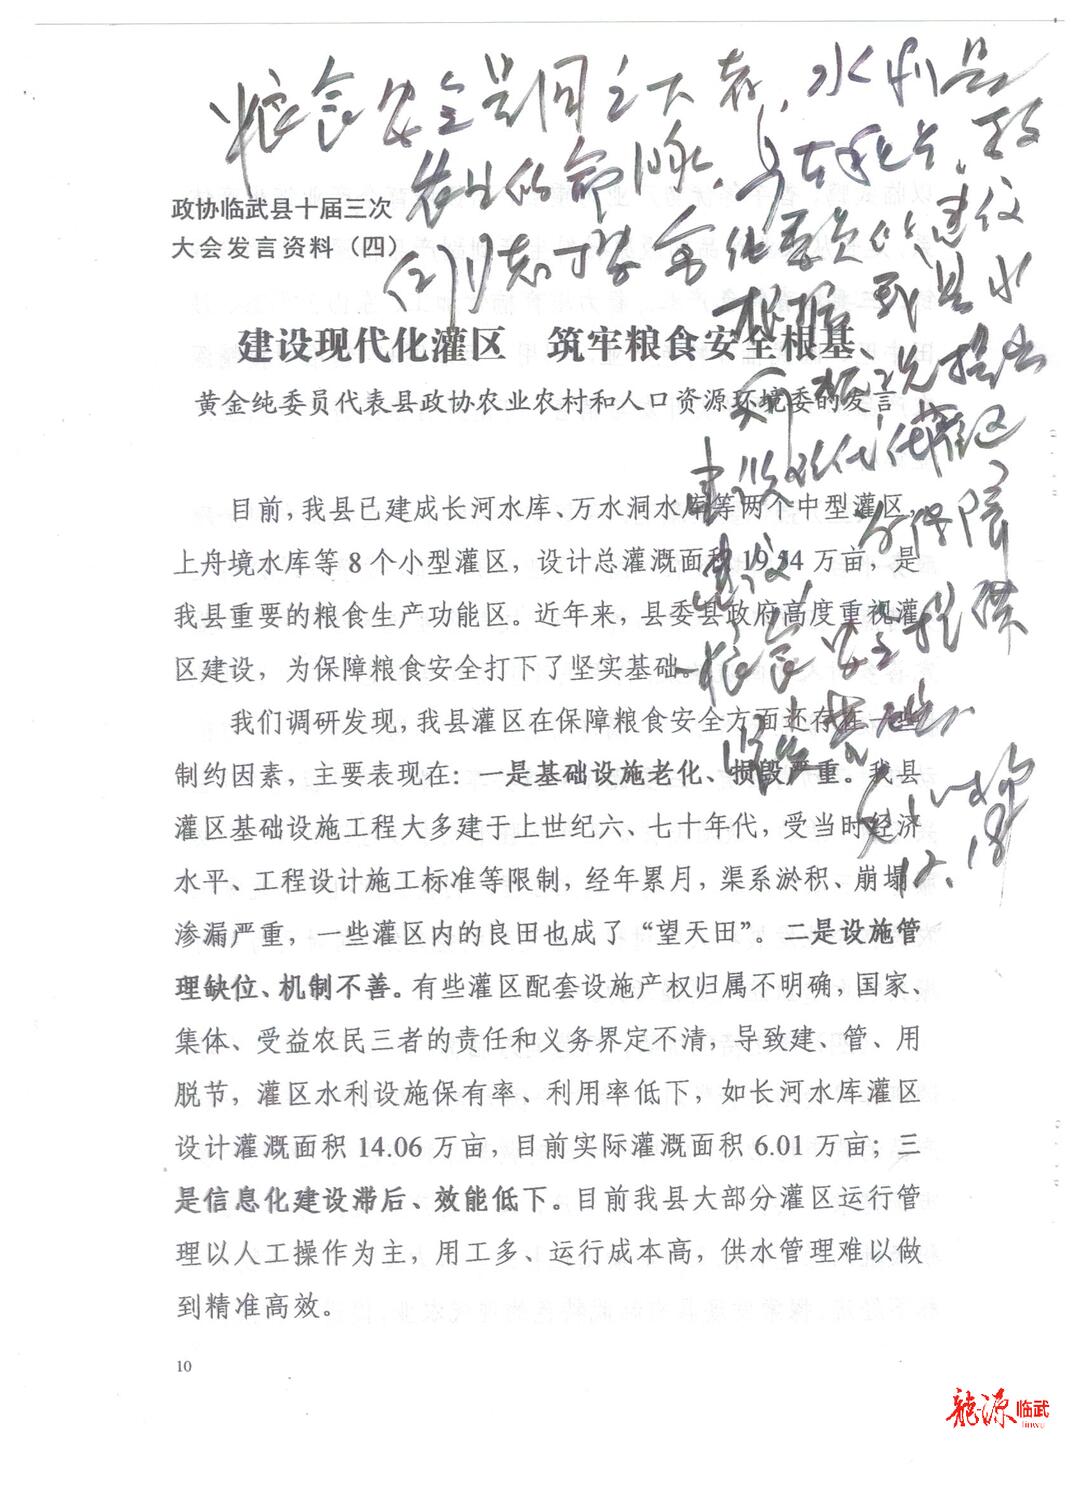 粮食安全是国之大者，水利是
农业的命脉，
政协临武县十届三次
大会发言资料（四）
黄金纯委员的建议
根据我县水
建设现代化灌区　筑牢粮食安全根基
提出
黄金纯委员代表县政协农业农村和人口资源环境委的发言
建设现代化灌区
目前，我县已建成长河水库、万水洞水库等两个中型灌区，
为保障
上舟境水库等 8 个小型灌区，设计总灌溉面积 19.54 万亩，是
建议，
我县重要的粮食生产功能区。近年来，县委县政府高度重视灌
粮食安全提供
区建设，为保障粮食安全打下了坚实基础。
我们调研发现，我县灌区在保障粮食安全方面还存在一些
制约因素，主要表现在：一是基础设施老化、损毁严重。我县
灌区基础设施工程大多建于上世纪六、七十年代，受当时经济
12.18
水平、工程设计施工标准等限制，经年累月，渠系淤积、崩塌、
渗漏严重，一些灌区内的良田也成了“望天田”。二是设施管
理缺位、机制不善。有些灌区配套设施产权归属不明确，国家、
集体、受益农民三者的责任和义务界定不清，导致建、管、用
脱节，灌区水利设施保有率、利用率低下，如长河水库灌区
设计灌溉面积 14.06 万亩，目前实际灌溉面积 6.01 万亩；三
是信息化建设滞后、效能低下。目前我县大部分灌区运行管
理以人工操作为主，用工多、运行成本高，供水管理难以做
到精准高效。
10
龍源临武
linwu